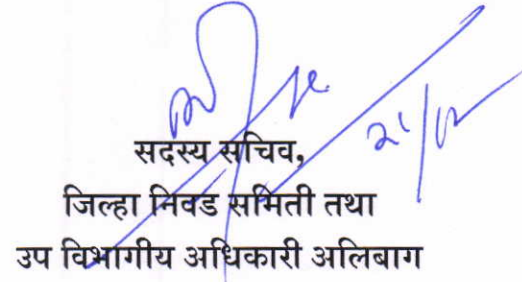 सदस्य सचिव,
जिल्हा निवड समिती तथा
उप विभागीय अधिकारी अलिबाग